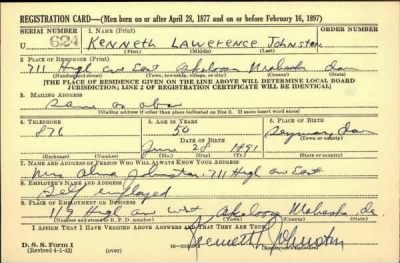 REGISTRATION CARD—(Men born on or after April 28, 1877 and on or before February 16, 1897)
SERIAL NUMBER 1. NAME (Print) ORDER NUMBER
U 624 KENNETH LAWERENCE JOHNSTON
(First) (Middle) (Last)
2. PLACE OF RESIDENCE (Print)
711 High ave East Oskaloosa Mahaska Ia
(Number and street) (Town, township, village, or city) (County) (State)
[THE PLACE OF RESIDENCE GIVEN ON THE LINE ABOVE WILL DETERMINE LOCAL BOARD
JURISDICTION; LINE 2 OF REGISTRATION CERTIFICATE WILL BE IDENTICAL]
3. MAILING ADDRESS
Same as above
[Mailing address if other than place indicated on line 2. If same insert word same]
4. TELEPHONE 5. AGE IN YEARS 6. PLACE OF BIRTH
876 50
DATE OF BIRTH (Town or county)
June 28 1891 Ia
(Exchange) (Number) (Mo.) (Day) (Yr.) (State or country)
7. NAME AND ADDRESS OF PERSON WHO WILL ALWAYS KNOW YOUR ADDRESS
Mrs Alma Johnston 711 High ave East
8. EMPLOYER'S NAME AND ADDRESS
Self employed
9. PLACE OF EMPLOYMENT OR BUSINESS
119 High ave West Oskaloosa Mahaska Ia.
(Number and street or R. F. D. number) (Town) (County) (State)
I AFFIRM THAT I HAVE VERIFIED ABOVE ANSWERS AND THAT THEY ARE TRUE.
D. S. S. Form 1
(Revised 4-1-42) (over)
Kenneth L Johnston
(Registrant's signature)